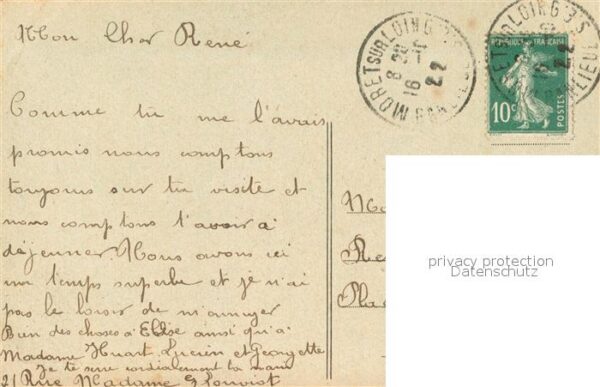 Mon Cher René
Comme tu me l'avais
promis nous comptons
toujours sur ta visite et
nous comptons t'avoir à
déjeuner Nous avons ici
un temps superbe et je n'ai
pas le loisir de m'ennuyer
Bien des choses à Elise ainsi qu'à
Madame Huart Lucien et Georgette
Je te serre cordialement la main
21 Rue Madame
MORET SUR LOING
8 16
22
RÉPUBLIQUE FRANÇAISE
10c
POSTES
MORET SUR LOING
22
privacy protection
Datenschutz